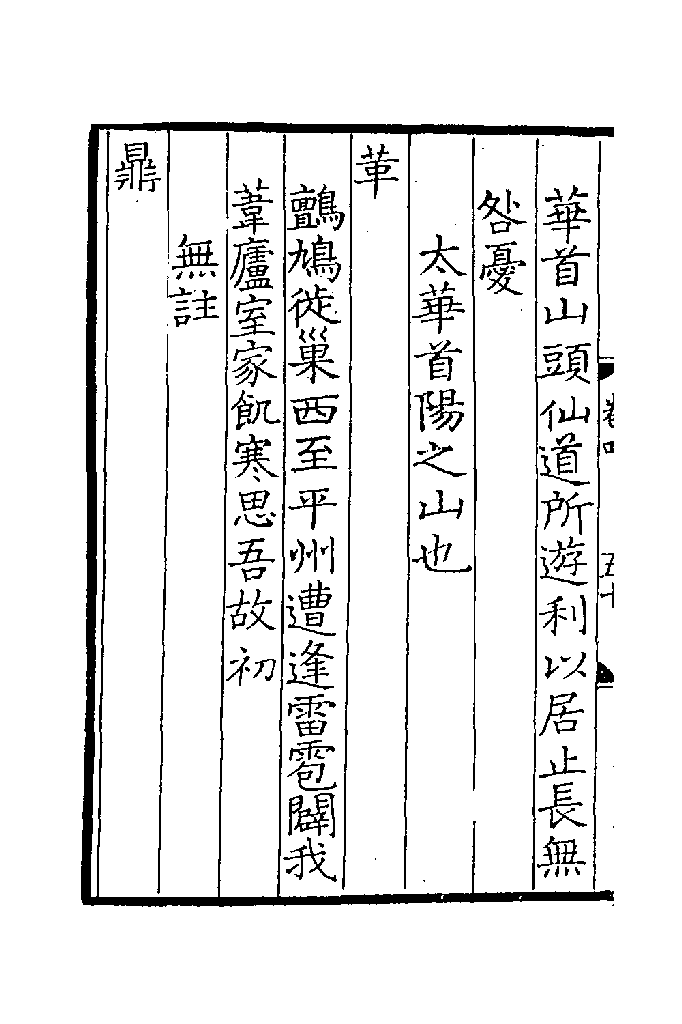 華首山頭仙道所遊利以居止長無
咎憂
太華首陽之山也
革
鸇鳩徙巢西至平州遭逢雷雹闢我
葦廬室家飢寒思吾故初
無註
鼎
卷四
五十